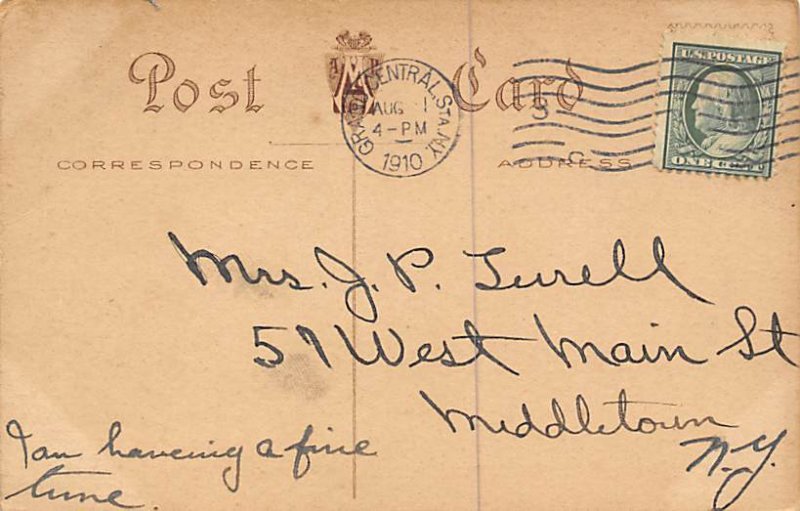 Post Card
A M P
GRAND CENTRAL STA. N.Y.
AUG 1
4-PM
1910
U.S. POSTAGE
ONE CENT
CORRESPONDENCE
ADDRESS
Mrs. J. P. Turell
57 West Main St
Middletown
N.Y.
I am having a fine
time.